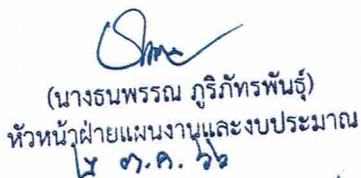 (นางธนพรรณ ภูริภัทรพันธุ์)
หัวหน้าฝ่ายแผนงานและงบประมาณ
ต.ค. ๖๖